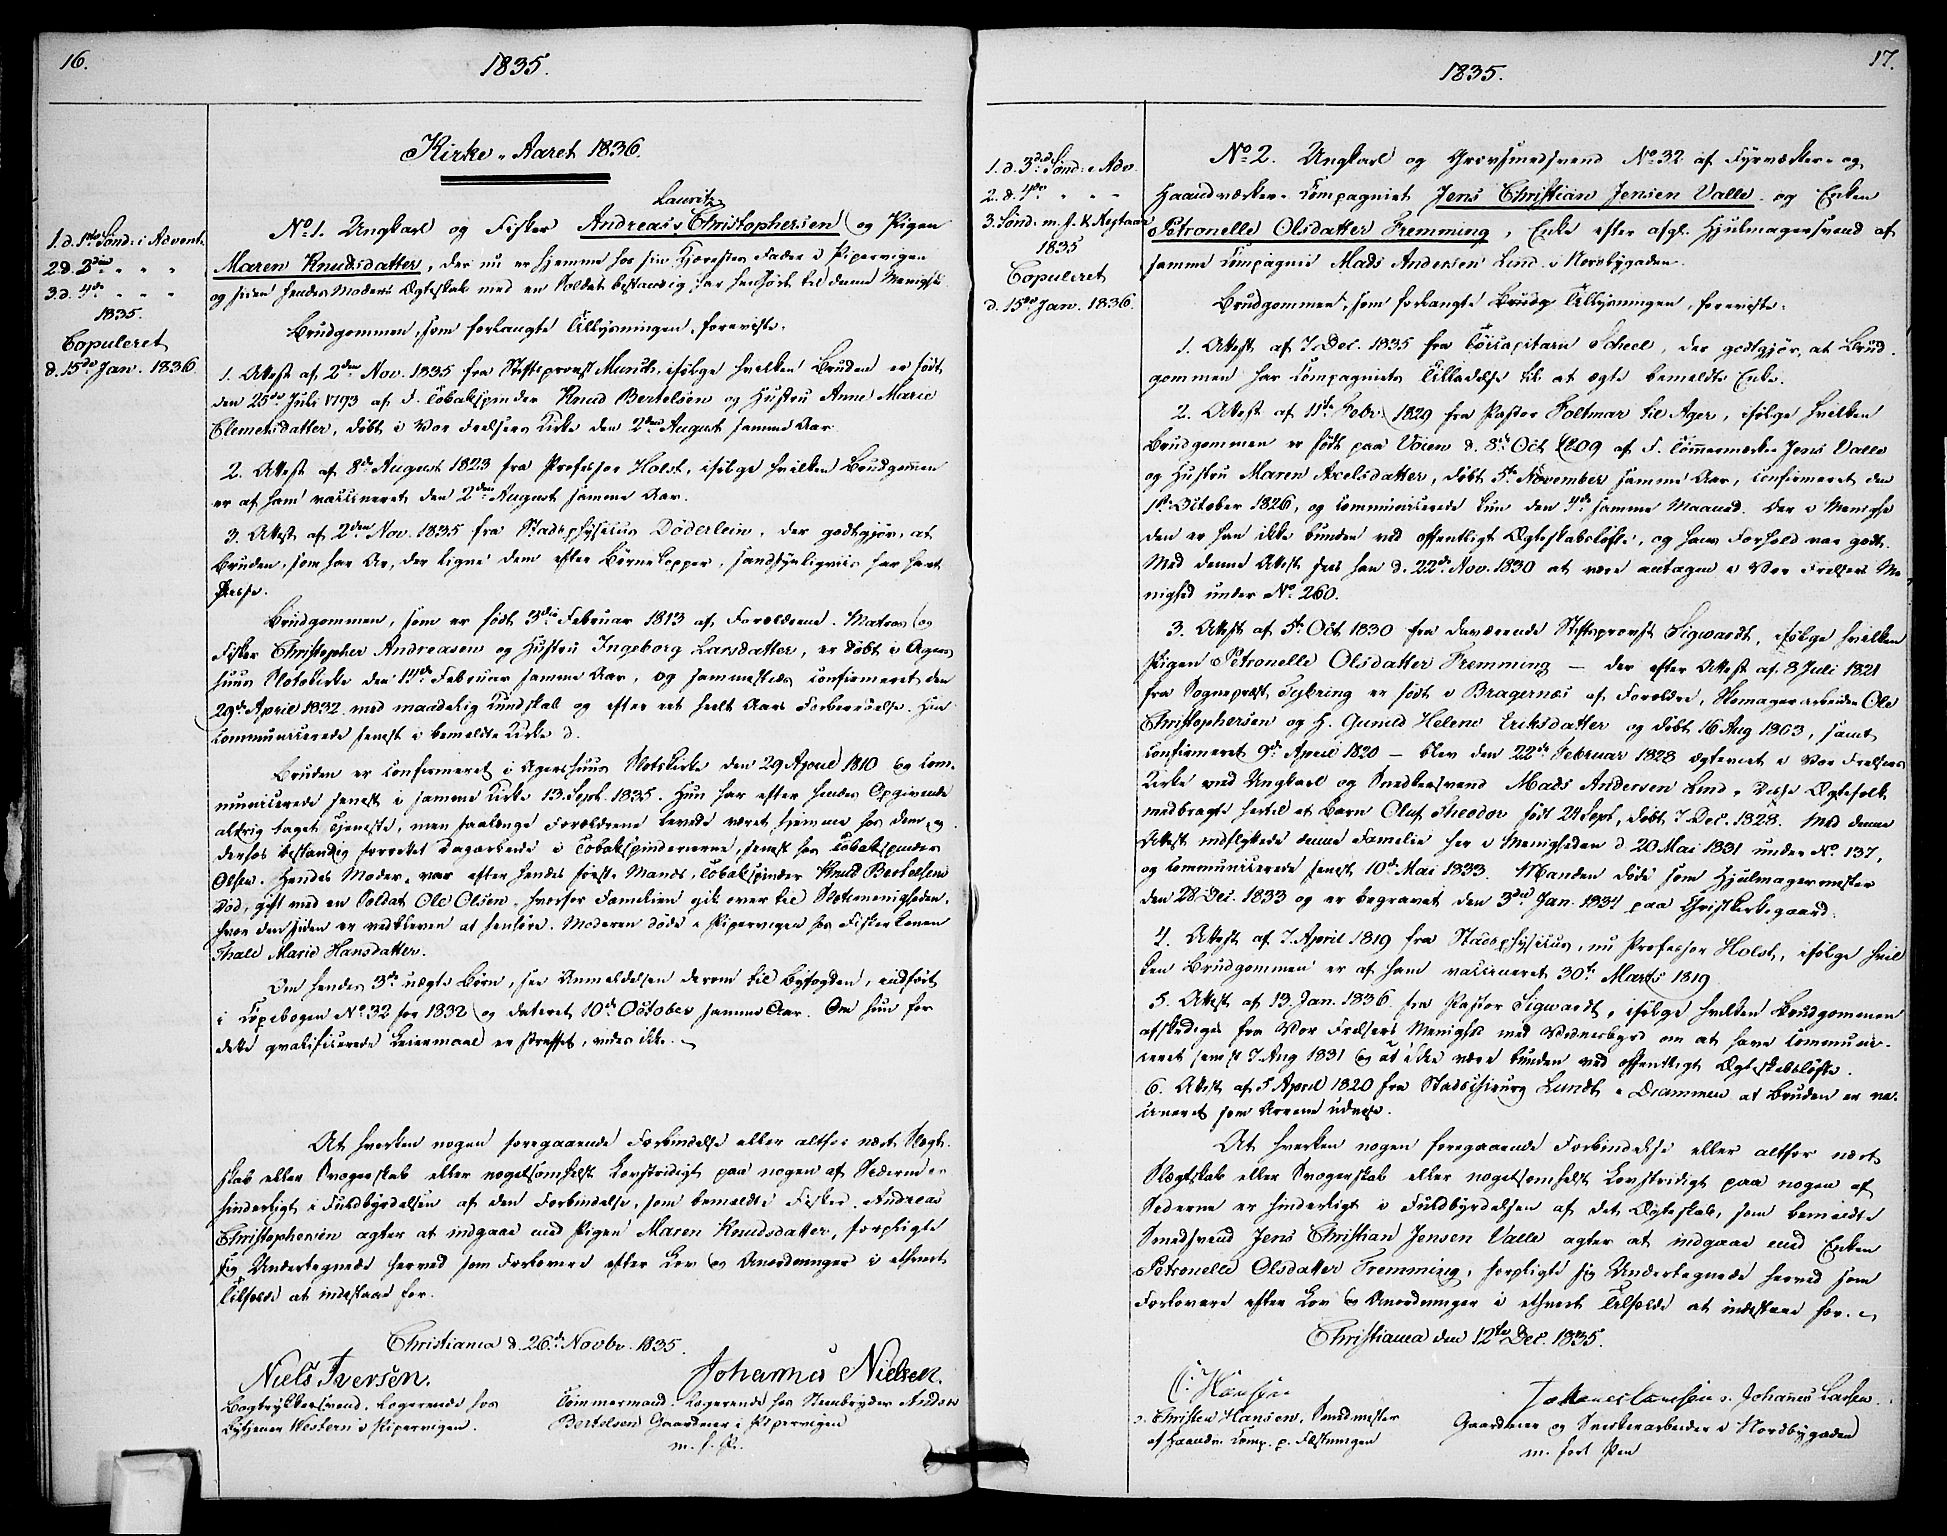 16.
1835.
Kirke-Aaret 1836.
1. d. 1ste Sønd: i Advent.
2. d. 2den " " "
3. d. 4de " " "
1835.
Copuleret
d. 15de Jan. 1836.
Lauritz
No 1. Ungkarl og Fisker Andreas Christophersen og Pigen
Maren Knudsdatter, der nu er hjemme hos sin Kjærestes Fader i Pipervigen
og siden hendes Moders Ægteskab med en Soldat bestandig har henhørt til denne Menighed.
Brudgommen, som forlangte Tillysningen, foreviste:
1. Attest af 2den Nov. 1835 fra Stiftsprovst Munch, ifølge hvilken Bruden er født
den 25de Juli 1793 af F. Tobakspinder Knud Bertelsen og Hustru Anne Marie
Clemetsdatter, døbt i Vor Frelsers Kirke den 2den August samme Aar.
2. Attest af 8de August 1823 fra Professor Holst, ifølge hvilken Brudgommen
er af ham vaccineret den 2den August samme Aar.
3. Attest af 2den Nov. 1835 fra Stadsphysicus Döderlein, der godtgjør, at
Bruden, som har Ar, der ligne dem efter Børnekopper, sandsynligviis har havt
disse.
Brudgommen, som er født 3die Februar 1813 af Forældrene Matros og
Fisker Christopher Andreasen og Hustru Ingeborg Larsdatter, er døbt i Agers-
huus Slotskirke den 14de Februar samme Aar, og sammesteds confirmeret den
29de April 1832 med maadelig Kundskab og efter eet heelt Aars Forberedelse. Han
communicerede senest i bemeldte Kirke d.
Bruden er confirmeret i Agershuus Slotskirke den 29 April 1810 og com-
municerede senest i samme Kirke 13. Sept. 1835. Hun har efter hendes Opgivende
aldrig taget Tjeneste, men saalænge Forældrene levede været hjemme hos dem, og
derhos bestandig forrettet Dagarbeide i Tobakspinderierne, senest hos Tobakspinder
Olsen. Hendes Moder, var efter hendes første Mands, Tobakspinder Knud Bertelsens
Død, gift med en Soldat Ole Olsen, hvorfor Familien gik over til Slotsmenigheden,
hvor den siden er vedbleven at henhøre. Moderen døde i Pipervigen hos Fisker Konen
Thale Marie Hansdatter.
Om hendes 3de uægte Børn, see Anmeldelsen derom til Byfogden, indført
i Copiebogen No 32 for 1832 og dateret 10de October samme Aar. Om hun for
dette qvalificerede Leiermaal er straffet, vides ikke.
At hverken nogen foregaaende Forbindelse eller altfor nært Slægt-
skab eller Svogerskab eller nogetsomhelst Lovstridigt paa nogen af Siderne er
hinderligt i Fuldbyrdelsen af den Forbindelse, som bemeldte Fisker Andreas
Christophersen agter at indgaae med Pigen Maren Knudsdatter, forpligte
sig Undertegnede herved som Forlovere efter Lov og Anordninger i ethvert
Tilfælde at indestaae for.
Christiania d. 26de Novbr. 1835.
Niels Iversen. Johannes Nielsen.
Bogtrykkersvend. Logerende hos
Western i Pipervigen.
Tømmermand. Logerende hos Steenbryder Anders
Bertelsen Gaardeier i Pipervigen
m. f. P.
17.
1835.
1. d. 3die Sønd. i Adv.
2. d. 4de " " "
3. Sønd. m. J. & Nytaar
1835
Copuleret
d. 15de Jan. 1836.
No 2. Ungkarl og Grovsmedsvend No 32 af Fyrværker- og
Haandværker-Compagniet Jens Christian Jensen Valle og Enken
Petronelle Olsdatter Fremming, Enke efter afg. Hjulmagersvend af
samme Compagnie Mads Andersen Lind i Nordbygaden.
Brudgommen, som forlangte Tillysningen, foreviste:
1. Attest af 7. Dec. 1835 fra Tøicapitain Scheel, der godtgjør, at Brud-
gommen har Compagniets Tilladelse til at ægte bemeldte Enke.
2. Attest af 11te Febr. 1829 fra Pastor Foltmar til Ager, ifølge hvilken
Brudgommen er født paa Vøien d. 8de Oct 1809 af F. Tømmermand Jens Valle
og Hustru Maren Axelsdatter, døbt 5te November samme Aar, confirmeret den
1ste October 1826, og communicerede kun den 4de samme Maaned. Der i Menighe-
den er han ikke bunden ved offentligt Ægteskabsløfte, og hans Forhold var godt.
Med denne Attest sees han d. 22de Nov. 1830 at være antagen i Vor Frelsers Me-
nighed under No 260.
3. Attest af 5te Oct 1830 fra daværende Stiftsprovst Sigwardt, ifølge hvilken
Pigen Petronelle Olsdatter Fremming — der efter Attest af 8 Juli 1821
fra Sognepræst Tybring er født i Bragernæs af Forældre, Skomagerarbeider Ole
Christophersen og H. Gunild Helene Eriksdatter og døbt 16 Aug 1803, samt
confirmeret 9de April 1820 — blev den 22de Februar 1828 ægteviet i Vor Frelsers
Kirke med Ungkarl og Snedkersvend Mads Andersen Lind. Disse Ægtefolk
medbragte hertil et Barn Oluf Theodor født 24 Sept, døbt 7 Dec. 1828. Med denne
Attest indflyttede denne Familie her i Menigheden d 20 Mai 1831 under No. 137,
og communicerede senest 10de Mai 1833. Manden døde som Hjulmagermester
den 28 Dec. 1833 og er begravet den 3die Jan. 1834 paa Christkirkegaard.
4. Attest af 7. April 1819 fra Stadsphysicus, nu Professor Holst, ifølge hvil-
ken Brudgommen er af ham vaccineret 30te Marts 1819
5. Attest af 13. Jan. 1836 fra Pastor Sigwardt, ifølge hvilken Brudgommen
afskediges fra Vor Frelsers Menighed med Vidnesbyrd om at have communi-
ceret senest 7 Aug 1831 og at ikke være bunden ved offentligt Ægteskabsløfte.
6. Attest af 5 April 1820 fra Stadschirurg Lundt i Drammen at Bruden er vac-
cineret som Arrene udvise.
At hverken nogen foregaaende Forbindelse eller altfor nært
Slægtskab eller Svogerskab eller nogetsomhelst Lovstridigt paa nogen af
Siderne er hinderligt i Fuldbyrdelsen af det Ægteskab, som bemeldte
Smedsvend Jens Christian Jensen Valle agter at indgaae med Enken
Petronelle Olsdatter Fremming, forpligte sig Undertegnede herved som
Forlovere efter Lov og Anordninger i ethvert Tilfælde at indestaae for.
Christiania den 12te Dec. 1835.
C. Hansen
Christen Hansen, Smedmester
af Haandv. Comp. p. Fæstningen
Johannes Larsen
Gaardeier og Snedkerarbeider i Nordbygaden
m. ført Pen